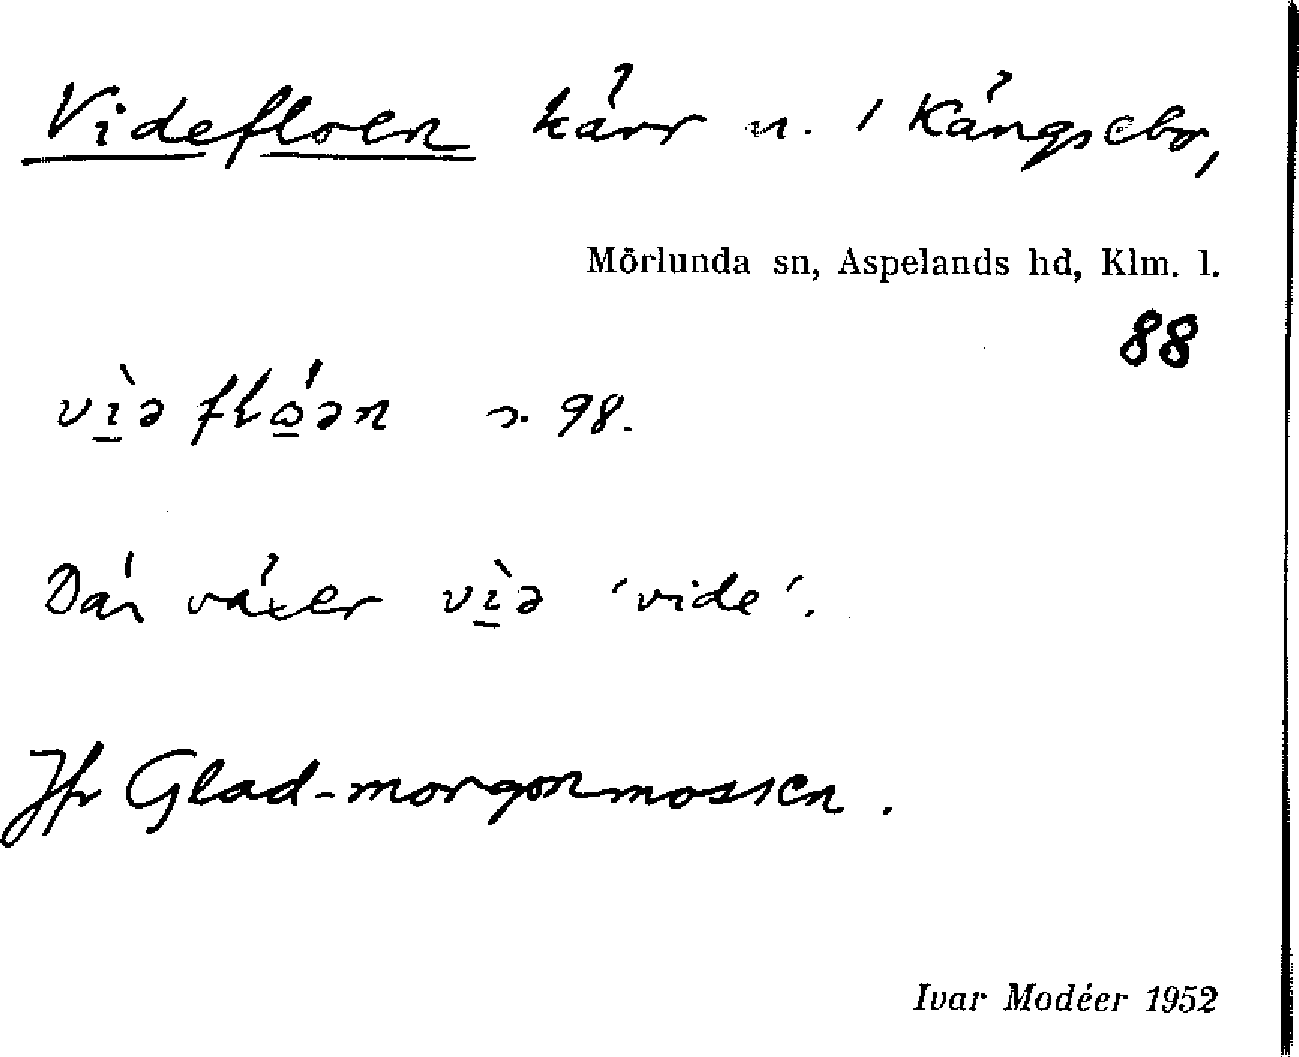 Videfloen kärr n. i Kängsebo,
Mörlunda sn, Aspelands hd, Klm. l.
88
vìə flóən s. 98.
Där växer vìə 'vide'.
Jfr Glad-morgonmossen.
Ivar Modéer 1952